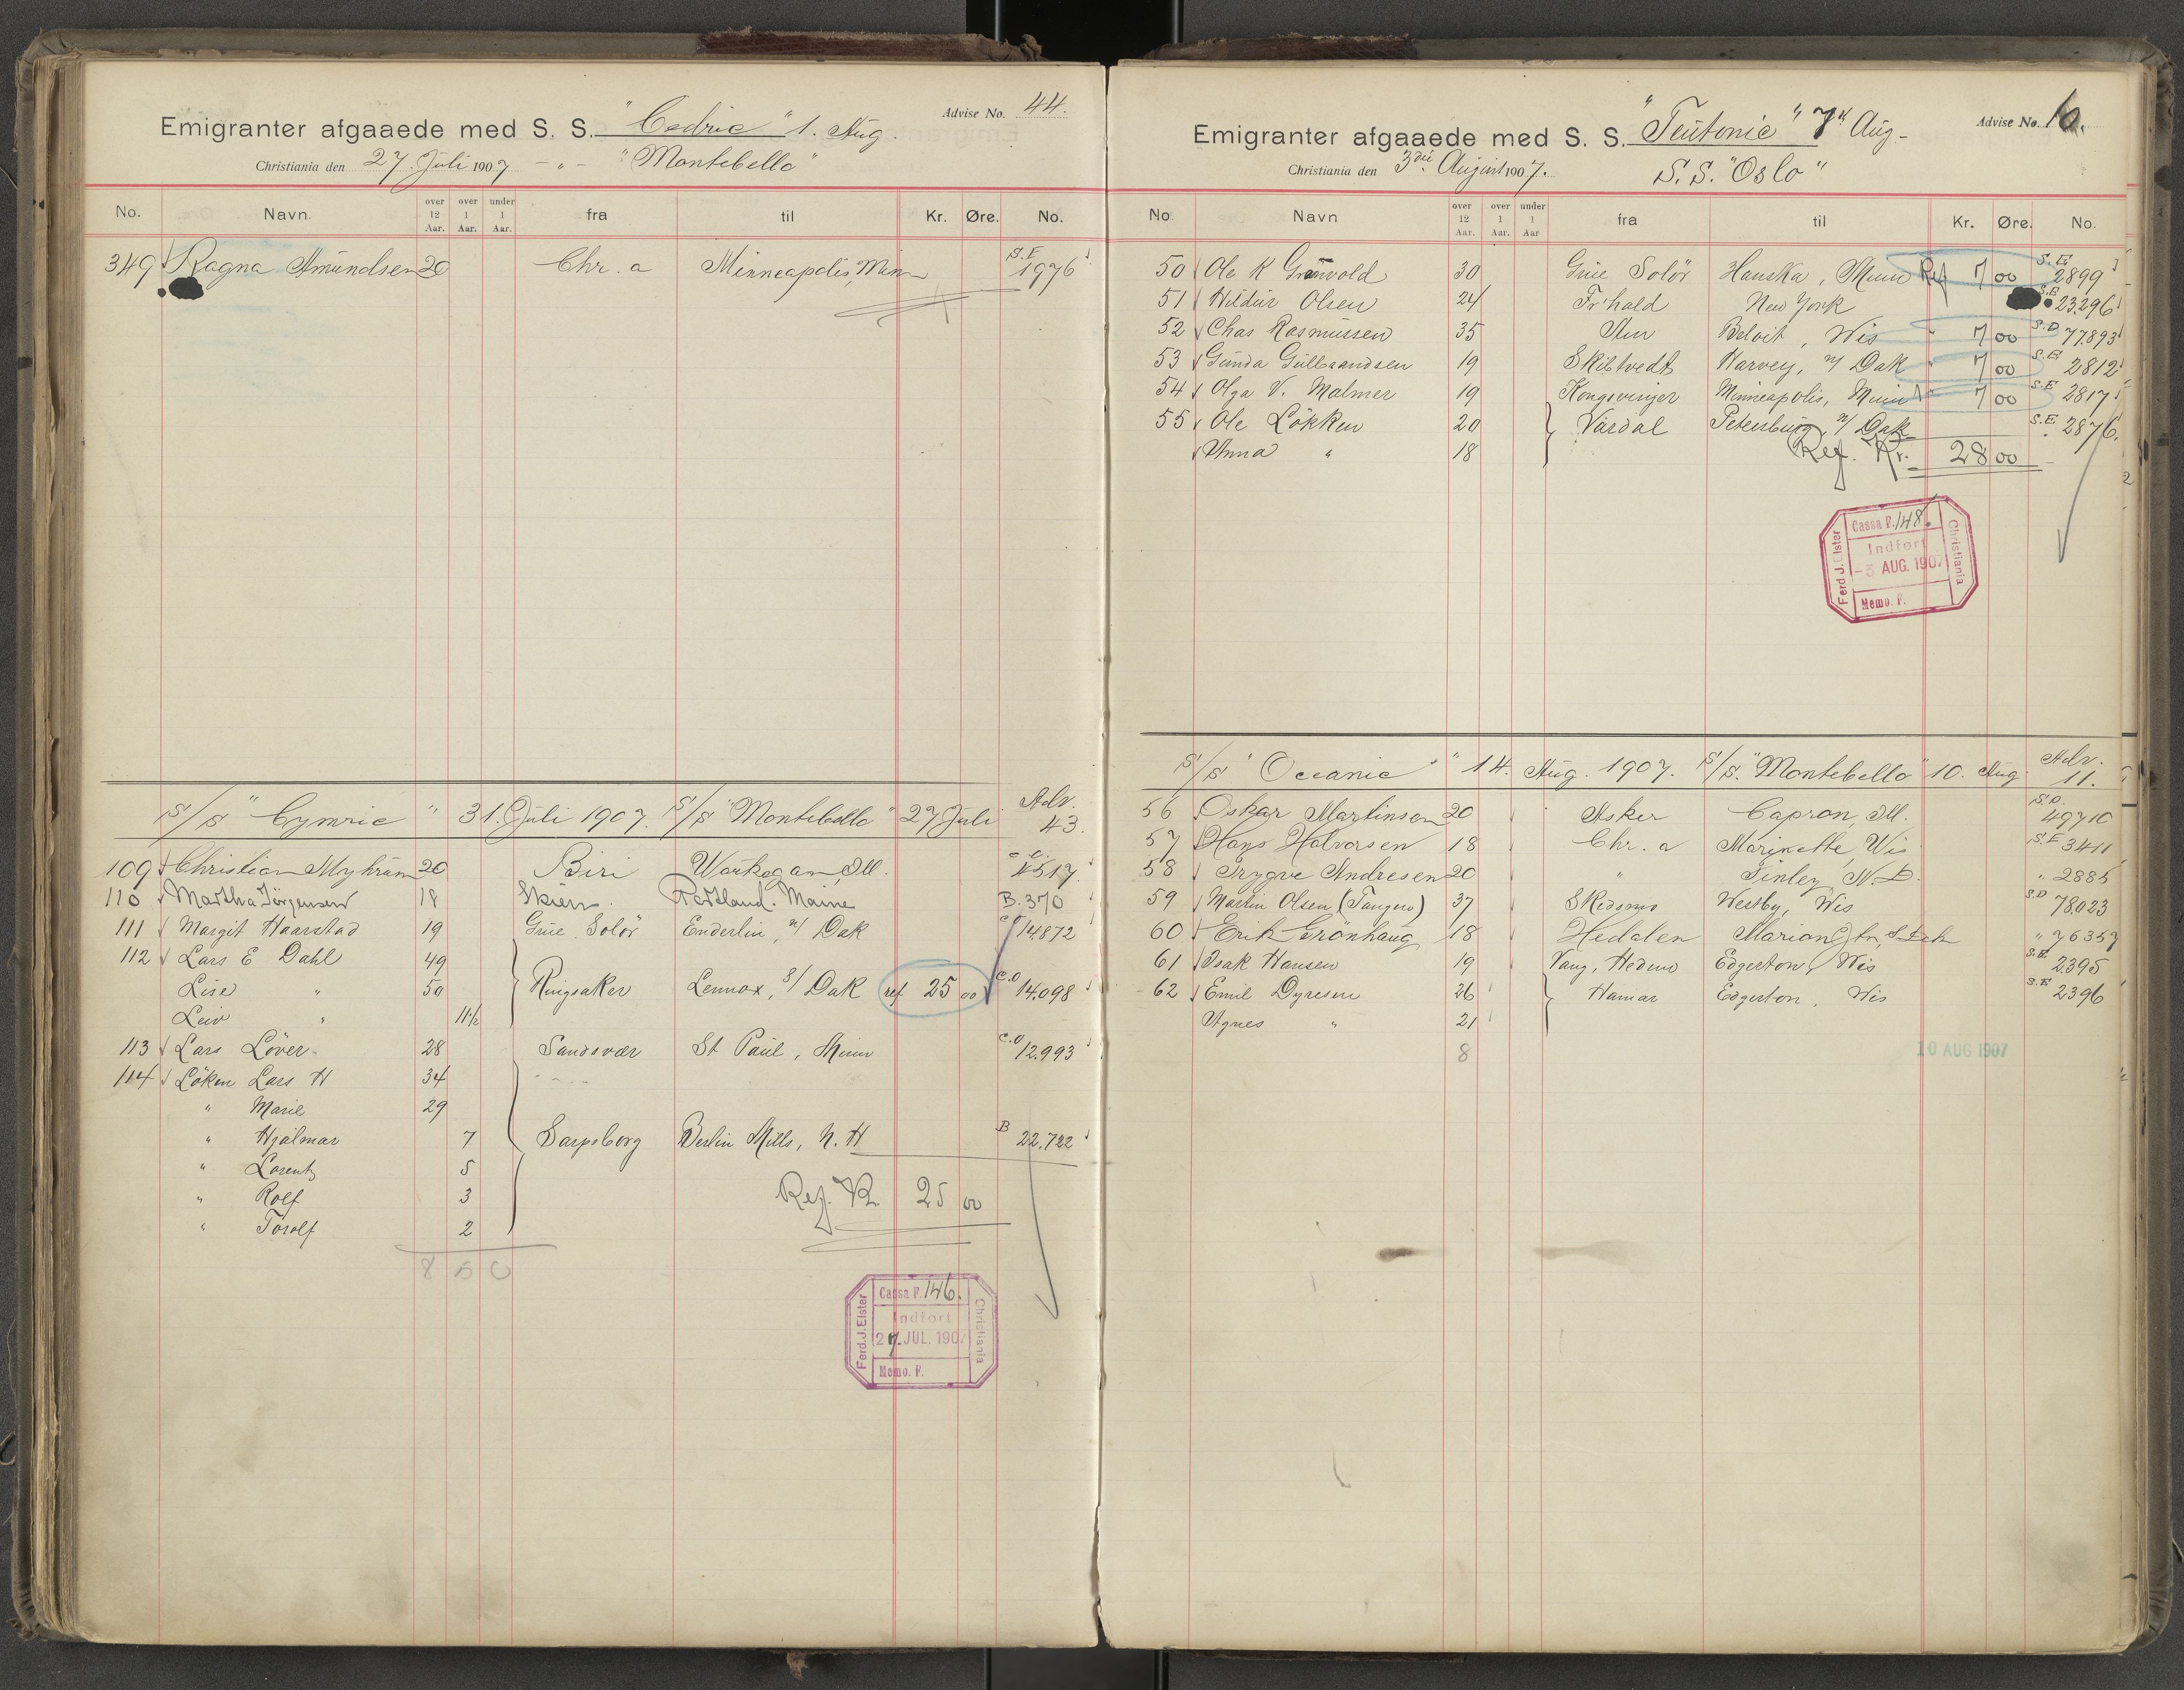 Emigranter afgaaede med S. S. "Cedric" 1. Aug. Advise No. 44.
Christiania den 27. Juli 1907 - " - "Montebello"
No. Navn. over 12 Aar. over 1 Aar. under 1 Aar. fra til Kr. Øre. No.
349 Ragna Amundsen 20 Chr. a Minneapolis, Minn S.E 1976
S/S "Cymric" 31. Juli 1907. S/S "Montebello" 27 Juli Adv. 43.
109 Christian Myhrum 20 Biri Waukegan, Ill.
110 Martha Jörgensen 18 Skien. Portland. Maine B. 370
111 Margit Haarstad 19 Grue Solör Enderlin, N/ Dak 14.872
112 Lars E Dahl 49
Lise " 50 Ringsaker Lennox, S/ Dak ref 25 00 C.O 14.098
Leiv " 11½
113 Lars Löver 28 Sandsvær St Paul, Minn C.O 12.993
114 Löken Lars H 34
" Marie 29
" Hjalmar 7 Sarpsborg Berlin Mills, N. H B 22.722
" Lorentz 5
" Rolf 3 Ref. Kr. 25 00
" Torolf 2
8 5 0
Ferd. J. Elster Cassa F. 146. Indført 27. JUL. 1907 Memo. F. Christiania
Emigranter afgaaede med S. S. "Teutonic" 7d Aug- Advise No. 10.
Christiania den 3die August 1907. S.S. "Oslo"
No. Navn over 12 Aar. over 1 Aar. under 1 Aar fra til Kr. Øre. No.
50 Ole K Grønvold 30 Grue Solör Hanska, Minn Ref 7 00 S.E. 2899
51 Hildur Olsen 24 Fr'hald New York S.E 23.296
52 Chas Rasmussen 35 Beloit, Wis " 7 00 S.D 77.893
53 Gunda Gulbrandsen 19 Skibtvedt Harvey, N/ Dak " 7 00 S.E 2812
54 Olga V. Malmer 19 Kongsvinger Minneapolis, Minn " 7 00 S.E 2817
55 Ole Lökken 20 Vardal Petersburg N/ Dak S.E. 2876.
Anna " 18 Ref. Kr. 28 00
Ferd J. Elster Cassa F. 148. Indført -3 AUG. 1907 Memo. F. Christiania
S/S "Oceanic" 14. Aug. 1907. S/S. "Montebello" 10. Aug Adv. 11.
56 Oskar Martinsen 20 Asker Capron, Ill. S.D. 49710
57 Hans Halvorsen 18 Chr. a Marinette, Wis S.E 3411
58 Trygve Andresen 20 " Finley, N.D. " 2885
59 Martin Olsen (Tangen) 37 Skedsmo Westby, Wis S.D 78.023
60 Erik Grönhaug 18 Hedalen Marion Jtn, S. Dak " 76357
61 Isak Hansen 19 Vang, Hedem Edgerton, Wis S.E. 2395
62 Emil Dyresen 26 Hamar Edgerton, Wis S.E 2396
Agnes " 21
8
10 AUG 1907